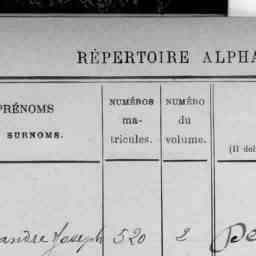 RÉPERTOIRE ALPHA
PRÉNOMS
SURNOMS.
NUMÉROS
ma-
tricules.
NUMÉRO
du
volume.
(Il doi
andre Joseph 520 2 De